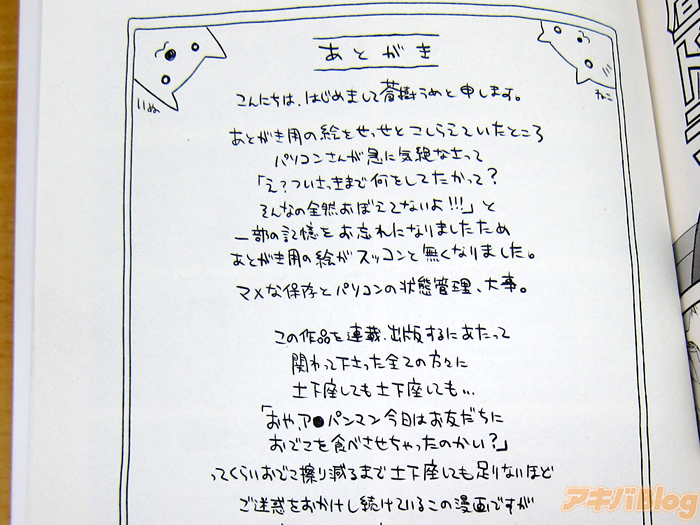 あとがき
いぬ
ねこ
こんにちは、はじめまして蒼樹うめと申します。
あとがき用の絵をせっせとこしらえていたところ
パソコンさんが急に気絶なさって
「え?ついさっきまで何をしてたかって?
そんなの全然おぼえてないよ!!!」と
一部の記憶をお忘れになりましたため
あとがき用の絵がスッコンと無くなりました。
マメな保存とパソコンの状態管理、大事。
この作品を連載、出版するにあたって
関わって下さった全ての方々に
土下座しても土下座しても…
「おや、ア●パンマン今日はお友だちに
おでこを食べさせちゃったのかい?」
ってくらいおでこ擦り減るまで土下座しても足りないほど
ご迷惑をおかけし続けているこの漫画ですが
アキバBlog